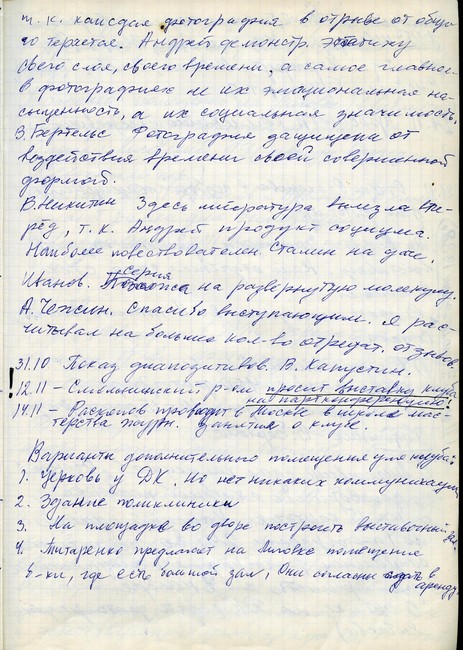 т.к. каждая фотография в отрыве от обще-
го теряется. Андрей демонстр. эстетику
своего слоя, своего времени, а самое главное
в фотографиях не их эмоциональная на-
сыщенность, а их социальная значимость.
В. Бертельс Фотография защищена от
воздействия времени своей совершенной
формой.
В. Никитин Здесь литература вылезла впе-
рёд, т.к. Андрей продукт социума.
Наиболее повествователен Сталин на
Иванов. серия похожа на развернутую молекулу.
А. Чежин. Спасибо выступающим. Я рас-
читывал на большее кол-во отрицат. отзывов.
31.10 Показ диапозитивов. В. Капустин.
! 12.11 – Смольнинский р-он просит выставку клуба
на партконференцию!
14.11 – Расколов проводит в Москве в школе мас-
терства журн. занятия о клубе.
Варианты дополнительного помещения для клуба:
1. Церковь у ДК. Но нет никаких коммуникаций
2. Здание поликлиники
3. На площадке во дворе построить выставочный зал.
4. Титаренко предлагает на Лиговке помещение
б-ки, где есть большой зал, Они согласны сдать в
аренду.